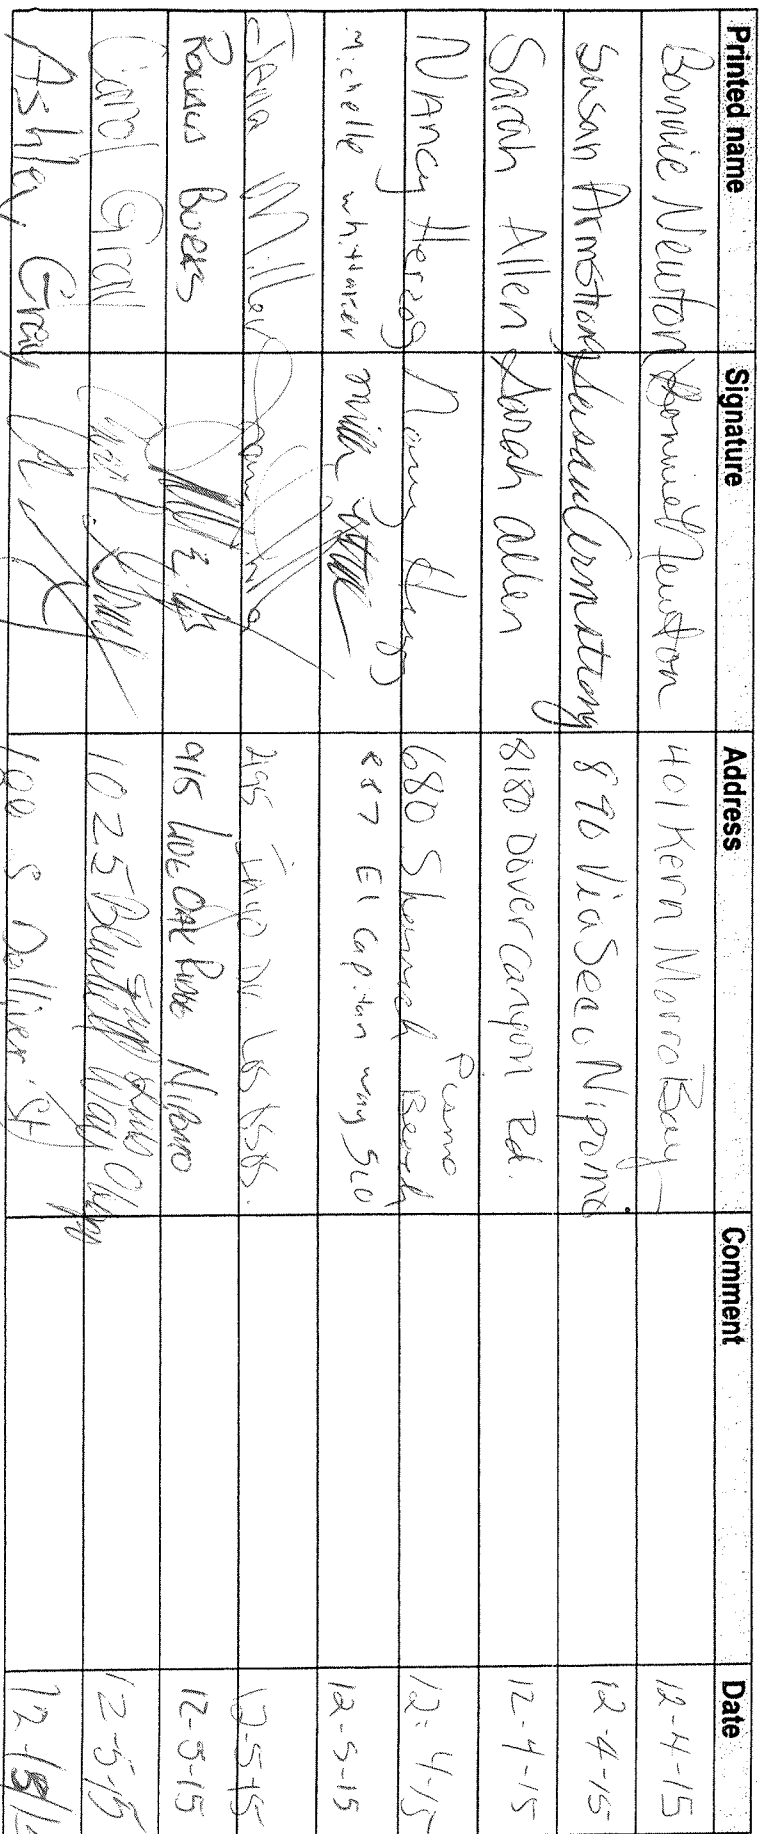 Printed name Signature Address Comment Date
Bonnie Newton Bonnie Newton 401 Kern Morro Bay 12-4-15
Susan Armstrong Susan Armstrong 890 Via Seco Nipomo 12-4-15
Sarah Allen Sarah Allen 8180 Dover Canyon Rd. 12-4-15
Nancy Herzog Nancy 680 Shamrock Pismo Beach 12-4-15
Michelle Whittaker 887 El Capitan way SLO 12-5-15
Jena Miller 2195 Inyo Dr. Los Osos. 12-5-15
915 Live Oak Ridge Nipomo 12-5-15
Carol Gray 1025 Way 12-5-15
Ashley Gray S Dolliver St